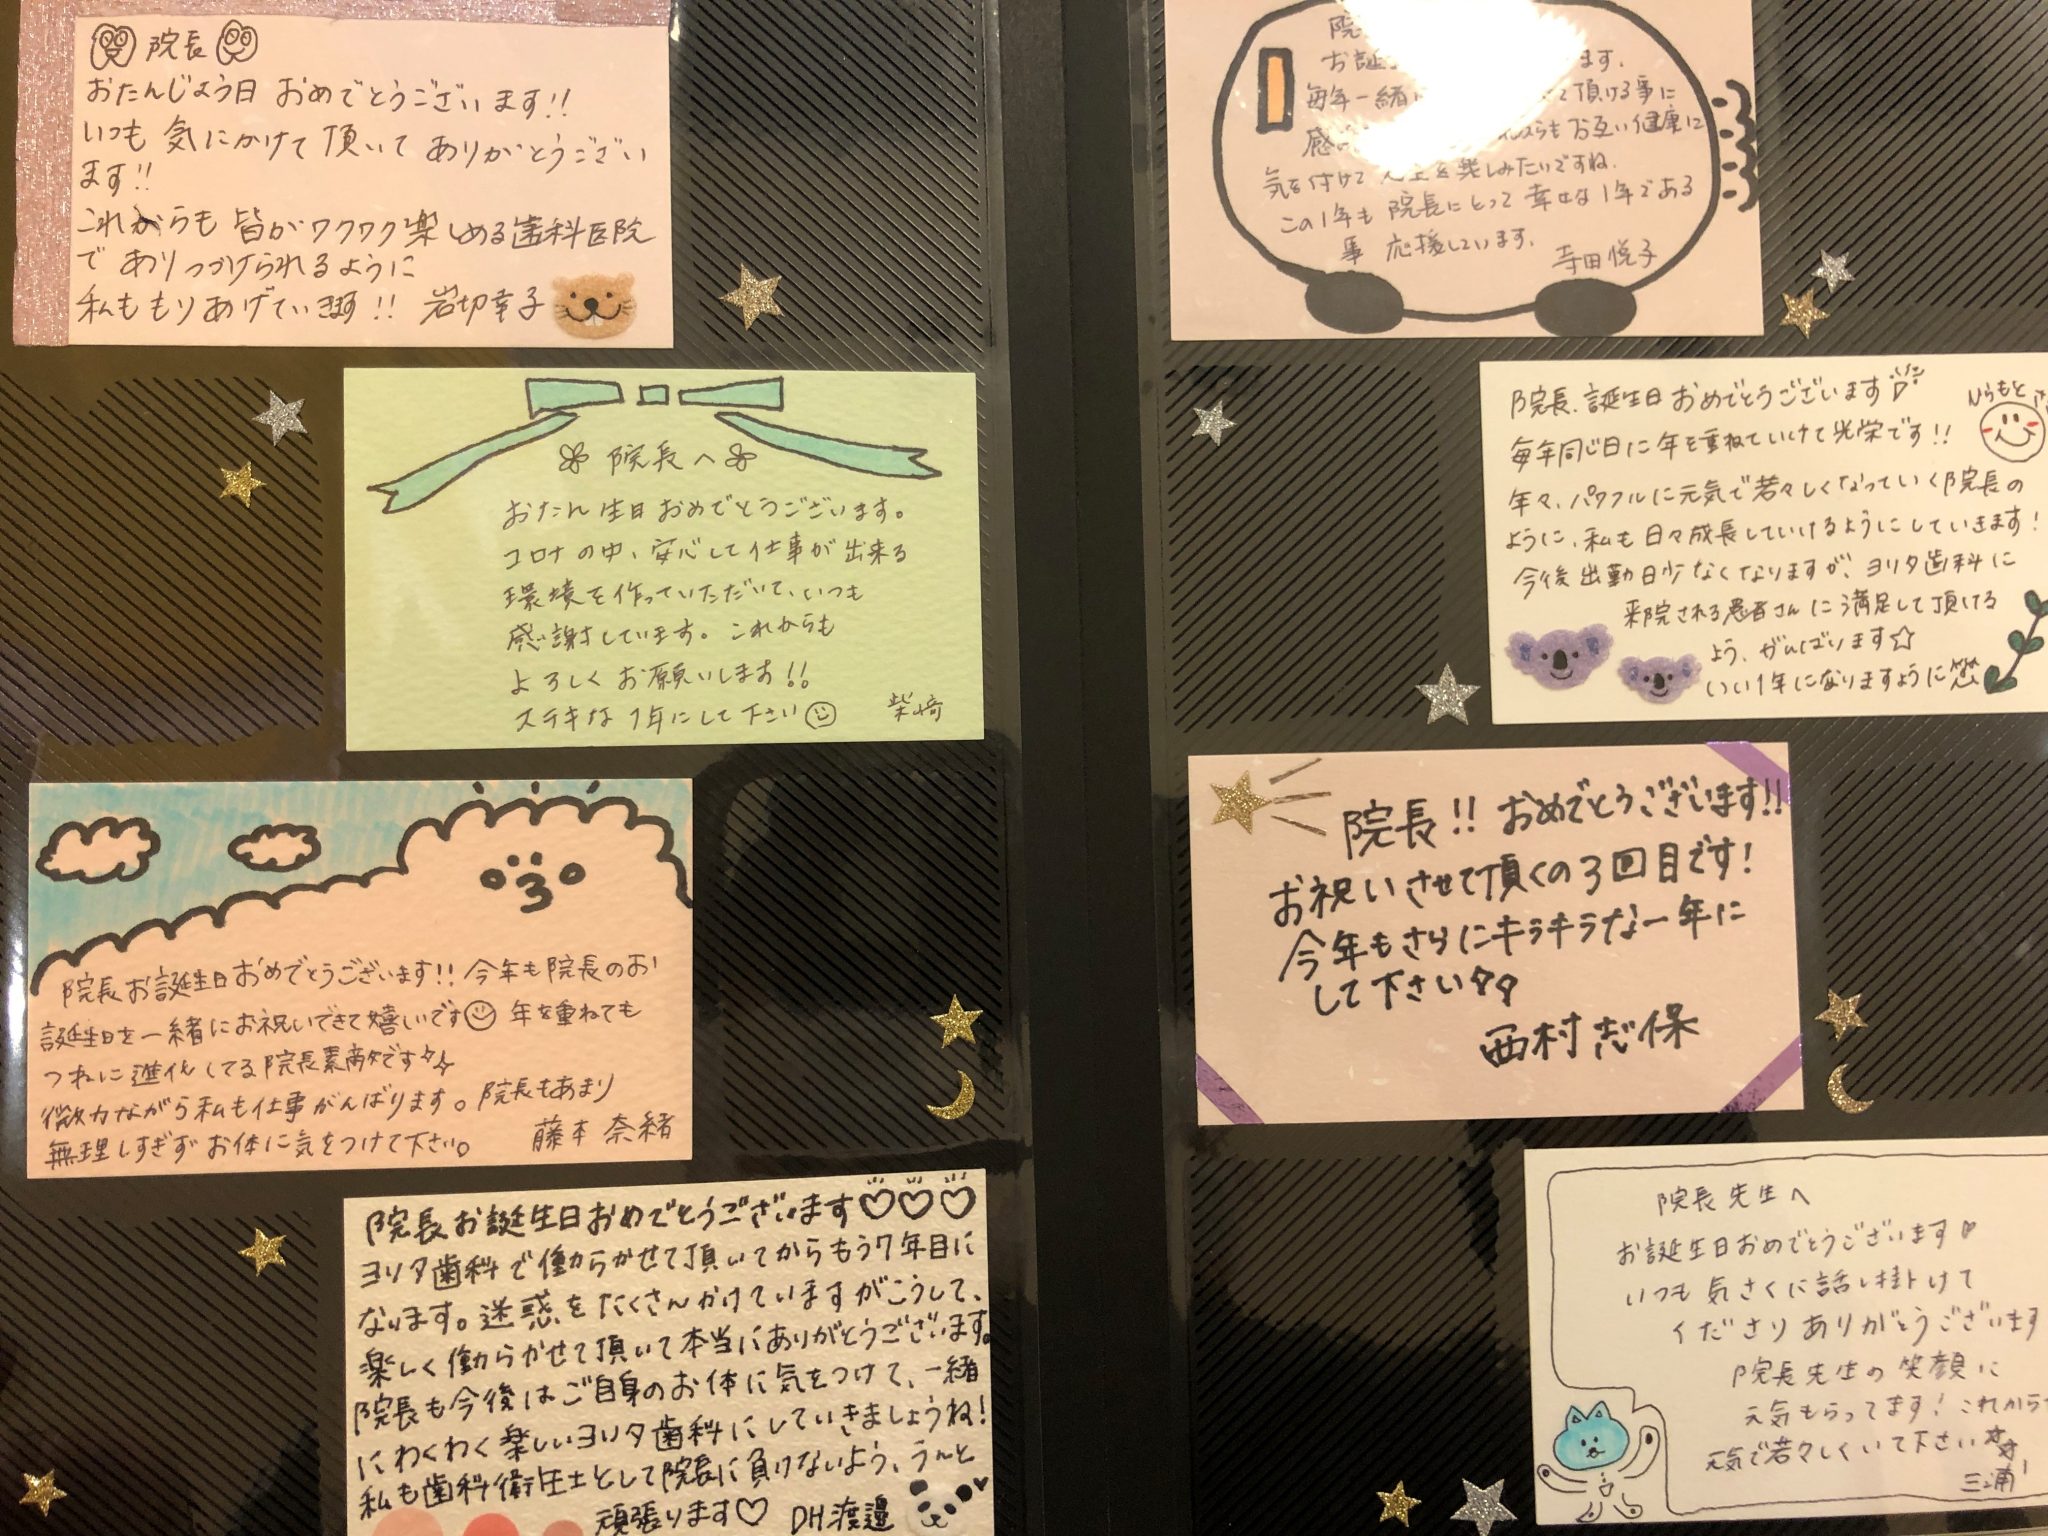 院長
おたんじょう日 おめでとうございます!!
いつも 気にかけて 頂いて ありがとうござい
ます!!
これからも 皆がワクワク楽しめる歯科医院
で ありつづけられるように
私ももりあげていきます!! 岩切幸子
院長へ
おたん生日おめでとうございます。
コロナの中、安心して仕事が出来る
環境を作っていただいて、いつも
感謝しています。これからも
よろしくお願いします!!
ステキな1年にして下さい 柴崎
院長お誕生日おめでとうございます!! 今年も院長のお
誕生日を一緒にお祝いできて嬉しいです 年を重ねても
つねに進化してる院長素敵です
微力ながら私も仕事がんばります。院長もあまり
無理しすぎずお体に気をつけて下さい。 藤本 奈緒
院長お誕生日おめでとうございます♡♡♡
ヨリタ歯科で働らかせて頂いてからもう7年目に
なります。迷惑をたくさんかけていますがこうして、
楽しく働らかせて頂いて本当にありがとうございます。
院長も今後はご自身のお体に気をつけて、一緒
にわくわく楽しいヨリタ歯科にしていきましょうね!
私も歯科衛生士として院長に負けないよう、うんと
頑張ります♡ DH渡邉
院
お誕 ます.
毎年一緒に て頂ける事に
感 らも お互い健康に
気を付けて 楽しみたいですね.
この1年も 院長にとって 幸せな1年である
事 応援しています.
寺田悦子
院長、誕生日おめでとうございます
ひらもと
毎年同じ日に年を重ねていけて光栄です!!
年々、パワフルに元気で若々しくなっていく院長の
ように、私も日々成長していけるようにしていきます!
今後出勤日少なくなりますが、ヨリタ歯科に
来院される患者さんに満足して頂ける
よう、がんばります☆
いい1年になりますように
院長!! おめでとうございます!!
お祝いさせて頂くの3回目です!
今年もさらにキラキラな一年に
して下さい
西村志保
院長先生へ
お誕生日おめでとうございます
いつも気さくに話し掛けて
くださりありがとうございます
院長先生の笑顔に
元気もらってます! これから
元気で若々しくいて下さい
三浦